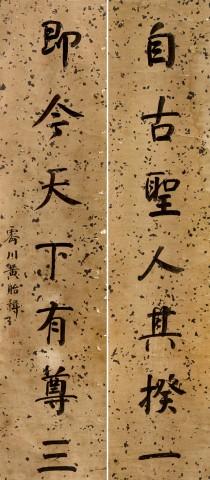 自古聖人其揆一
即今天下有尊三
霱川黃貽楫